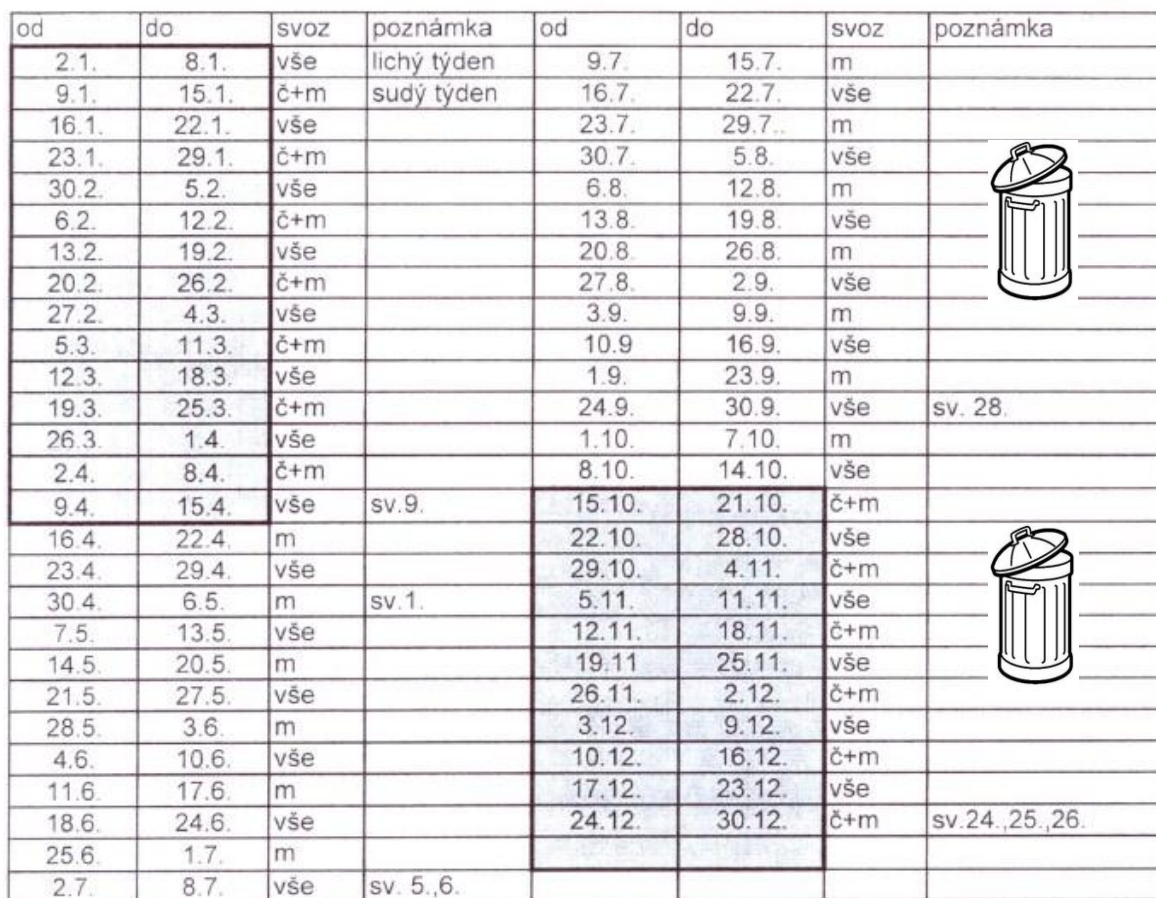 od do svoz poznámka od do svoz poznámka
2.1. 8.1. vše lichý týden 9.7. 15.7. m
9.1. 15.1. č+m sudý týden 16.7. 22.7. vše
16.1. 22.1. vše 23.7. 29.7.. m
23.1. 29.1. č+m 30.7. 5.8. vše
30.2. 5.2. vše 6.8. 12.8. m
6.2. 12.2. č+m 13.8. 19.8. vše
13.2. 19.2. vše 20.8. 26.8. m
20.2. 26.2. č+m 27.8. 2.9. vše
27.2. 4.3. vše 3.9. 9.9. m
5.3. 11.3. č+m 10.9 16.9. vše
12.3. 18.3. vše 1.9. 23.9. m
19.3. 25.3. č+m 24.9. 30.9. vše sv. 28.
26.3. 1.4. vše 1.10. 7.10. m
2.4. 8.4. č+m 8.10. 14.10. vše
9.4. 15.4. vše sv.9. 15.10. 21.10. č+m
16.4. 22.4. m 22.10. 28.10. vše
23.4. 29.4. vše 29.10. 4.11. č+m
30.4. 6.5. m sv.1. 5.11. 11.11. vše
7.5. 13.5. vše 12.11. 18.11. č+m
14.5. 20.5. m 19.11 25.11. vše
21.5. 27.5. vše 26.11. 2.12. č+m
28.5. 3.6. m 3.12. 9.12. vše
4.6. 10.6. vše 10.12. 16.12. č+m
11.6. 17.6. m 17.12. 23.12. vše
18.6. 24.6. vše 24.12. 30.12. č+m sv.24.,25.,26.
25.6. 1.7. m
2.7. 8.7. vše sv. 5.,6.